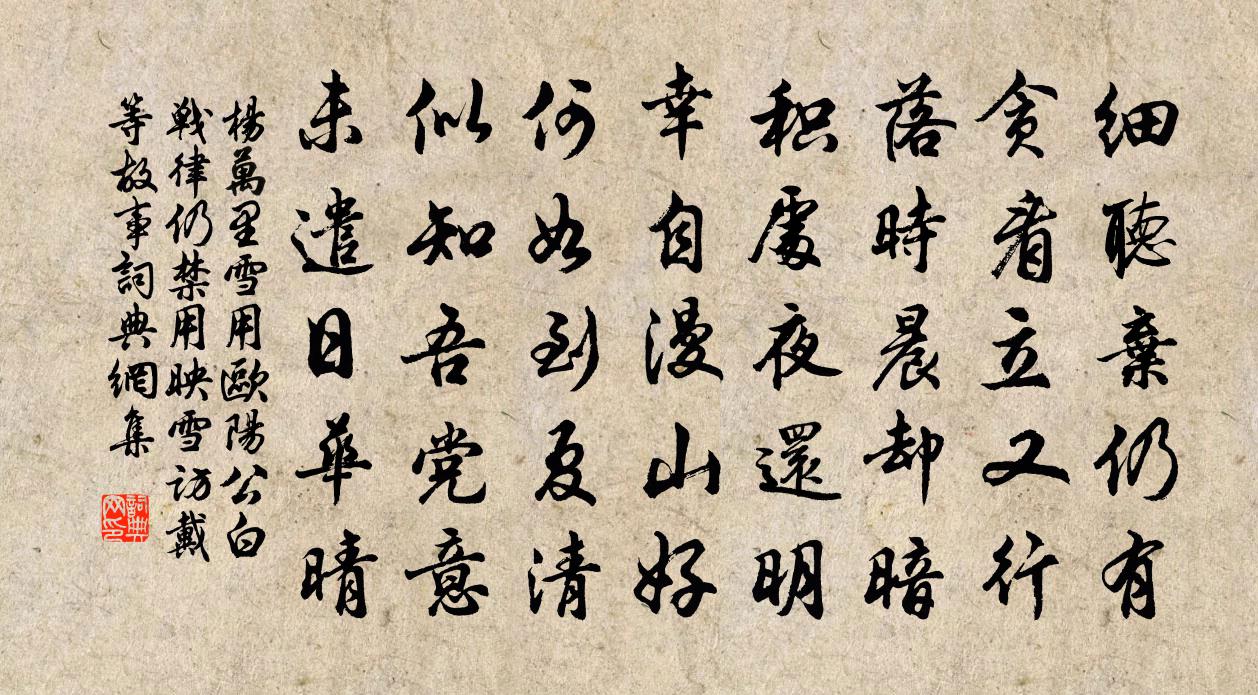 细聽棄仍有
贪看立又行
落時晨却暗
积處夜還明
幸自漫山好
何如到夏清
似知吾党意
未遣日華晴
楊萬里雪用歐陽公白
戰律仍禁用映雪访戴
等故事詞典網集
詞典
网印